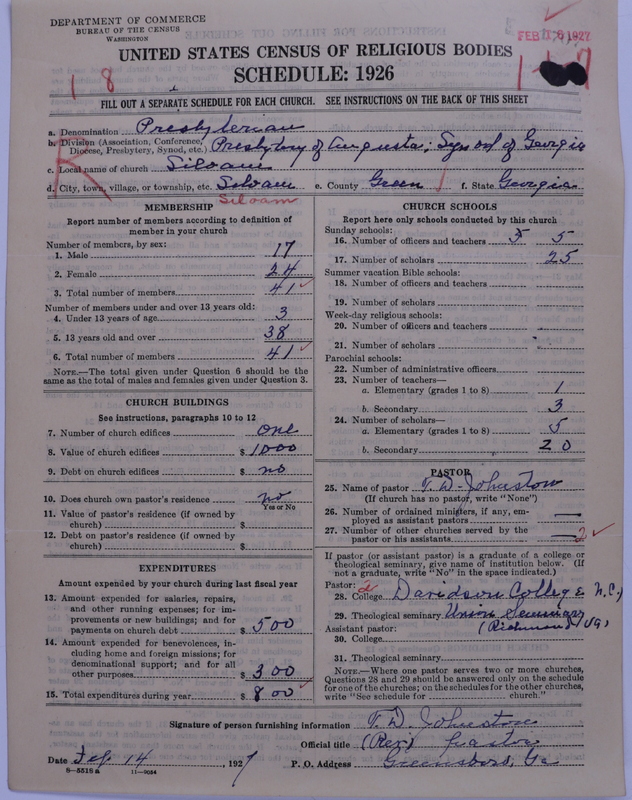 DEPARTMENT OF COMMERCE
BUREAU OF THE CENSUS
WASHINGTON
FEB 1927
UNITED STATES CENSUS OF RELIGIOUS BODIES
SCHEDULE: 1926
1 8
1-1-7
FILL OUT A SEPARATE SCHEDULE FOR EACH CHURCH. SEE INSTRUCTIONS ON THE BACK OF THIS SHEET
R
a. Denomination Presbyterian
b. Division (Association, Conference, Diocese, Presbytery, Synod, etc.) Presbytery of Augusta; Synod of Georgia
c. Local name of church Siloam
d. City, town, village, or township, etc. Siloam e. County Green f. State Georgia
Siloam
MEMBERSHIP
Report number of members according to definition of
member in your church
Number of members, by sex:
1. Male 17
2. Female 24
3. Total number of members 41
Number of members under and over 13 years old:
4. Under 13 years of age 3
5. 13 years old and over 38
6. Total number of members 41
NOTE.—The total given under Question 6 should be
same as the total of males and females given under Question 3.
CHURCH BUILDINGS
See instructions, paragraphs 10 to 12
7. Number of church edifices one
8. Value of church edifices $ 1000
9. Debt on church edifices $ no
10. Does church own pastor's residence no
Yes or No
11. Value of pastor's residence (if owned by
church) $
12. Debt on pastor's residence (if owned by
church) $
EXPENDITURES
Amount expended by your church during last fiscal year
13. Amount expended for salaries, repairs,
and other running expenses; for im-
provements or new buildings; and for
payments on church debt $ 500
14. Amount expended for benevolences, in-
cluding home and foreign missions; for
denominational support; and for all
other purposes $ 300
15. Total expenditures during year $ 800
CHURCH SCHOOLS
Report here only schools conducted by this church
Sunday schools:
16. Number of officers and teachers 5 5
17. Number of scholars 25
Summer vacation Bible schools:
18. Number of officers and teachers
19. Number of scholars
Week-day religious schools:
20. Number of officers and teachers
21. Number of scholars
Parochial schools:
22. Number of administrative officers
23. Number of teachers—
a. Elementary (grades 1 to 8) 1
b. Secondary 3
24. Number of scholars—
a. Elementary (grades 1 to 8) 5
b. Secondary 20
PASTOR
25. Name of pastor T. D. Johnston
(If church has no pastor, write "None")
26. Number of ordained ministers, if any, em-
ployed as assistant pastors —
27. Number of other churches served by the
pastor or his assistants — 2
If pastor (or assistant pastor) is a graduate of a college or
theological seminary, give name of institution below. (If
not a graduate, write "No" in the space indicated.)
Pastor:
28. College Davidson College N.C.
29. Theological seminary Union Seminary
Assistant pastor: (Richmond, Va)
30. College
31. Theological seminary
NOTE.—Where one pastor serves two or more churches,
Questions 28 and 29 should be answered only on the schedule
for one of the churches; on the schedules for the other churches,
write "See schedule for church."
Signature of person furnishing information T. D. Johnston
Official title (Rev) pastor
Date Feb 14, 1927 P. O. Address Greensboro, Ga
8—5518a 11—9054